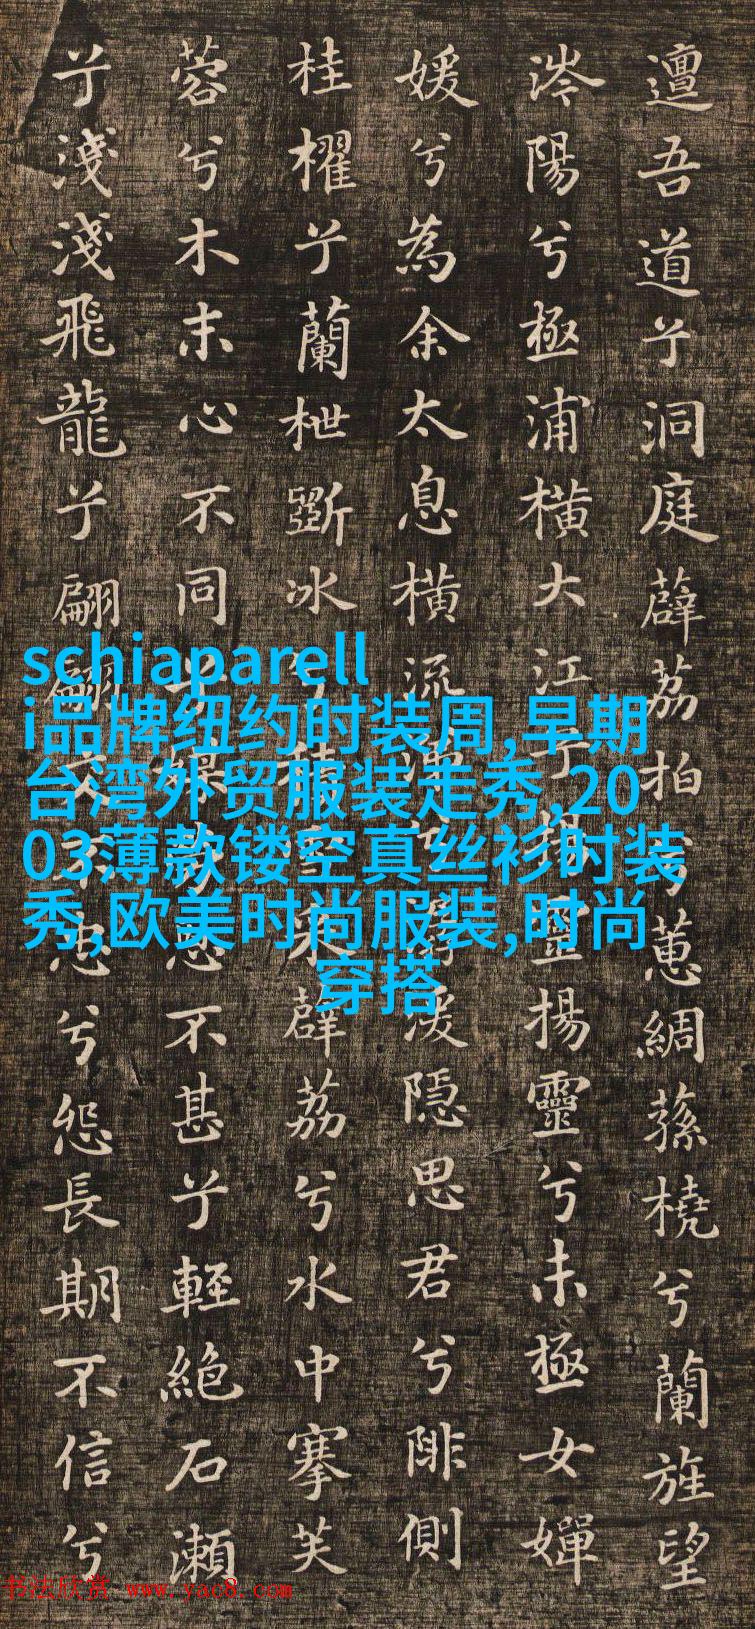 邅吾道兮洞庭薜荔拍兮蕙綢蓀橈兮蘭旌望
涔陽兮極浦橫大江兮揚靈揚靈兮未極女嬋
媛兮為余太息橫流涕兮潺湲隱思君兮陫側
桂櫂兮蘭枻斲冰兮積雪采薜荔兮水中搴芙
蓉兮木末心不同兮媒勞恩不甚兮輕絕石瀨
兮淺淺飛龍兮翩翩交不忠兮怨長期不信兮
schiaparell
i品牌纽约时装周,早期
台湾外贸服装走秀,20
03薄款镂空真丝衫时装
秀,欧美时尚服装,时尚
穿搭
书法欣赏 www.yac8.com